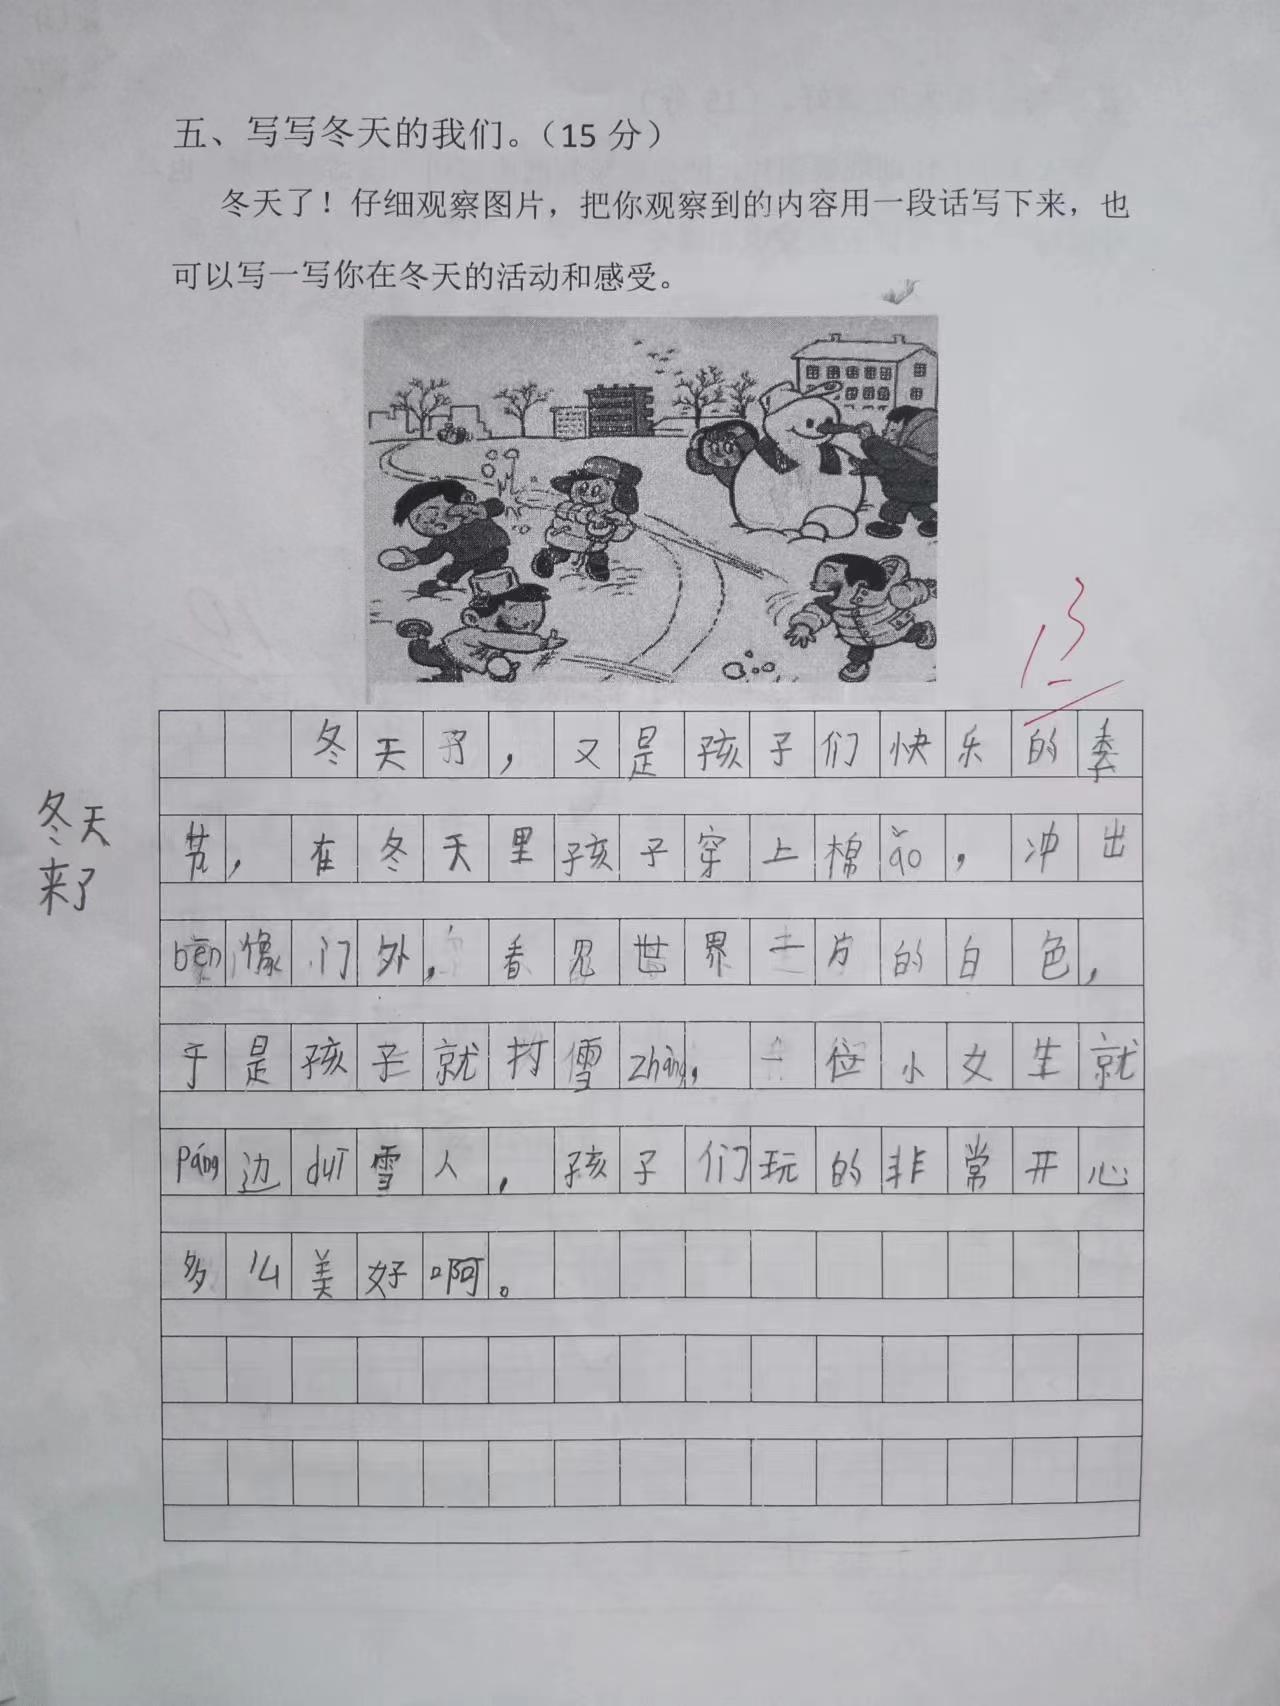 五、写写冬天的我们。（15 分）
冬天了！仔细观察图片，把你观察到的内容用一段话写下来，也
可以写一写你在冬天的活动和感受。
13
冬天了，又是孩子们快乐的季
节，在冬天里孩子穿上棉ǎo，冲出
冬天
来了
bēn像门外，看见世界一片的白色，
于是孩子就打雪zhàng，一位小女生就
páng边duī雪人，孩子们玩的非常开心
多么美好啊。